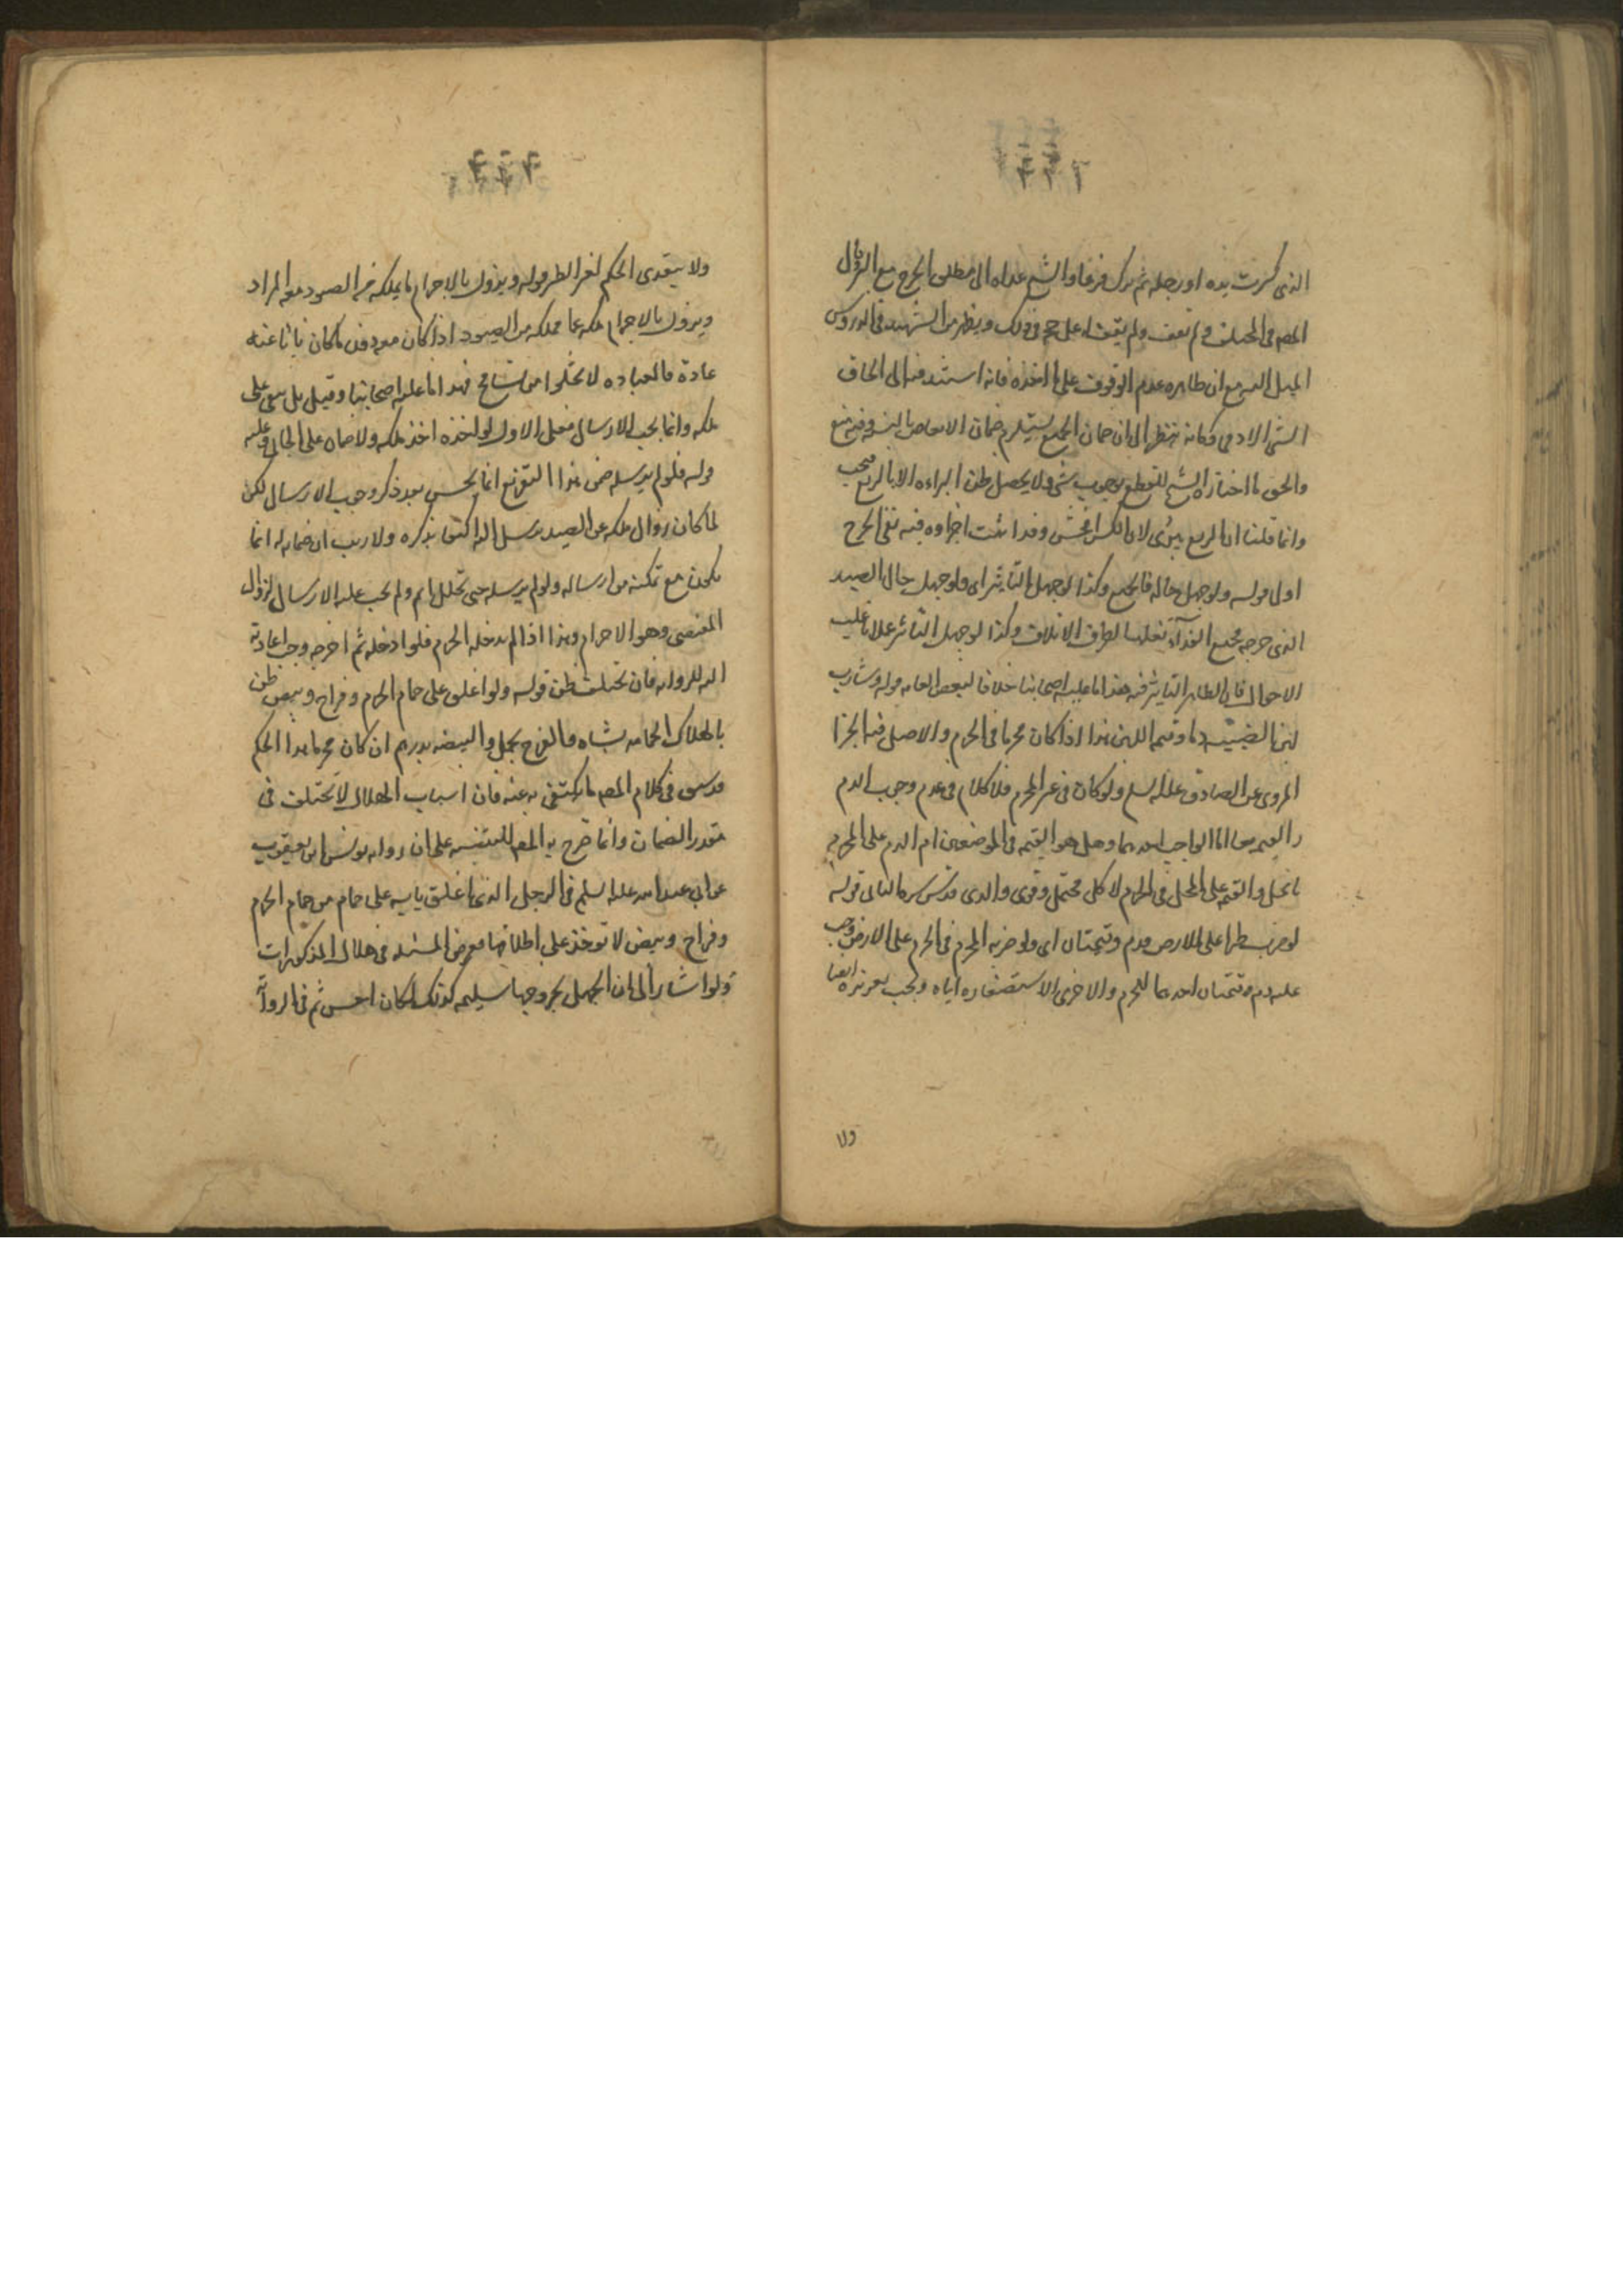 الذى كسرت يده او رجله ثم برك فرعا والشيخ عداه الى مطلق الجرح مع
المص فى المختلف ولم يقف له على حجة فى ذلك ويظهر من الشهيد فى الدروس
الميل اليه مع ان ظاهره عدم الوقوف على ماخذه فانه استند فيه الى الحاق
الشئ الادمى وكانه نظر الى ان ضمان الجميع يستلزم ضمان الابعاض بالنسبة وفيه منع
والحق ما اختاره الشيخ للقطع بوجوب شئ ولا يحصل ظن البراءه الا بالربع فيجب
وانما قلنا ان الربع يبرئ لان الكسر افحش وقد اثبت اجزاوه فيه ففى الجرح
اولى قوله ولو جهل حاله فالجميع وكذا لو جهل التاثير اى ولو جهل حال الصيد
الذى جرحه فجميع الفدآء تغليبا لطرف الاتلاف وكذا لو جهل التاثير عملا باغلب
الاحوال فان الظاهر التاثير فيه هذا ما عليه اصحابنا خلافا لبعض العامه قوله وشارب
لبن الظبية دما وقيمه اللبن هذا اذا كان محرما فى الحرم والاصل فيه الجزا
المروى عن الصادق عليه السلم ولو كان فى غير الحرم فلا كلام فى عدم وجوب الدم
والقيمه معا انما الواجب احدهما وهل هو القيمه فى الموضعين ام الدم على المحرم
فى الحل والقيمه على المحل فى الحرم لا كل محتمل وقوى والدى قدس سره الثانى قوله
لو ضرب بطير على الارض فدم وقيمتان اى ولو ضربه المحرم فى الحرم على الارض وجب
عليه دم وقيمتان احدهما للحرم والاخرى لاستصغاره اياه ويجب تعزيره ايضا
ولا
ولا يتعدى الحكم لغير الطير قوله ويزول بالاحرام ما يملكه من الصيود معه المراد
ويزول بالاحرام ملكه عما يملكه من الصيود اذا كان معه دون ما كان نائيا عنه
عادة فالعباده لا تخلوا من تسامح هذا ما عليه اصحابنا وقيل بل يبقى على
ملكه وانما يجب الارسال فعلى الاول لو اخذه اخذ ملكه ولا ضمان على الجانى عليه
قوله فلو لم يرسله ضمن هذا التفريع انما يحسن بعد ذكر وجوب الارسال لكن
لما كان زوال ملكه عن الصيد يرسل اليه اكتفى بذكره ولا ريب ان ضمانه له انما
يكون مع تمكنه من ارساله ولو لم يرسله حتى تحلل اثم ولم يجب عليه الارسال لزوال
المقتضى وهو الاحرام وهذا اذا لم يدخله الحرم فلو ادخله ثم اخرجه وجب اعادته
اليه للروايه فان تختلف ظن قوله ولو اغلق على حمام الحرم وفراخ وبيض ظن
باهلاك الحمامه بشاه والفرخ بحمل والبيضه بدرهم ان كان محرما هذا الحكم
قد سبق فى كلام المص ما يكتفى به عنه فان اسباب الهلاك لا تختلف فى
تقدير الضمان وانما صرح به المص للتنبيه على ان روايه يونس ابن يعقوب
عن ابى عبد الله عليه السلم فى الرجل الذى اغلق بابه على حمام من حمام الحرم
وفراخ وبيض لا توخذ على اطلاقها ففرض المسئله فى هلاك المذكورات
ولو اشار الى ان الجهل بخروجها سليمه كذلك لكان احسن ثم فى الروايه